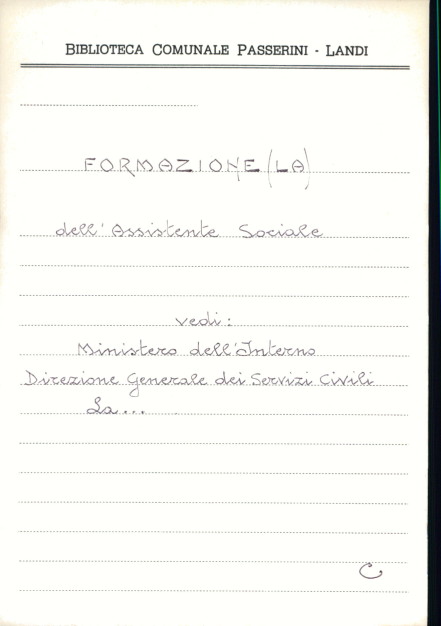 BIBLIOTECA COMUNALE PASSERINI - LANDI
FORMAZIONE (LA)
dell'Assistente Sociale
vedi:
Ministero dell'Interno
Direzione Generale dei Servizi Civili
La...
C